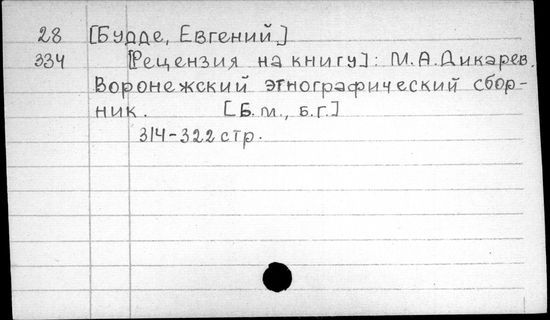 28 [Будде, Евгений.]
334 [Рецензия на книгу]: М.А.Дикарев.
Воронежский этнографический сбор-
ник. [Б.м., б.г.]
314-322 стр.